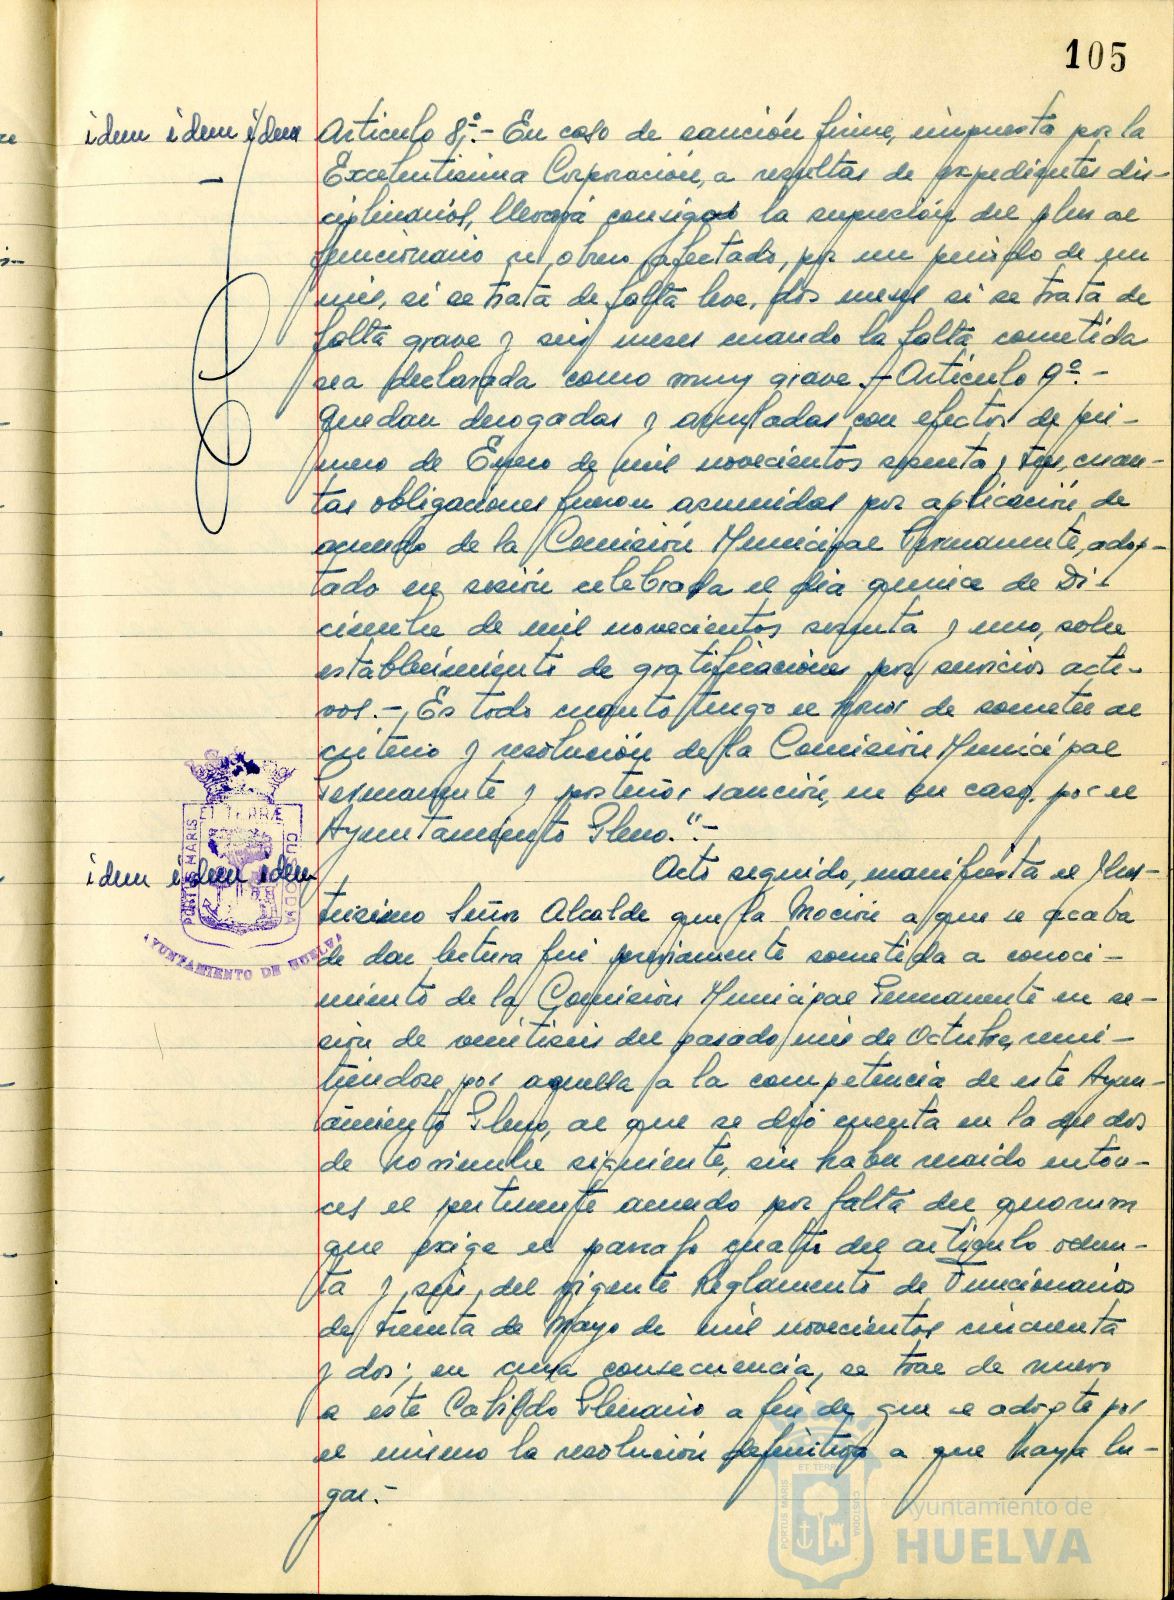 105
idem idem idem
Artículo 8º.- En caso de sanción firme, impuesta por la
Excelentísima Corporación, a resultas de expedientes dis-
ciplinarios, llevará consigo la supresión del plus al
funcionario u obrero afectado, por un periodo de un
mes, si se trata de falta leve, dos meses si se trata de
falta grave y seis meses cuando la falta cometida
sea declarada como muy grave.- Artículo 9º.-
Quedan derogadas y anuladas con efectos de pri-
mero de Enero de mil novecientos sesenta y tres, cuan-
tas obligaciones fueron asumidas por aplicación de
acuerdo de la Comisión Municipal Permanente, adop-
tado en sesión celebrada el día quince de Di-
ciembre de mil novecientos sesenta y uno, sobre
establecimiento de gratificaciones por servicios acti-
vos.-, Es todo cuanto tengo el honor de someter al
criterio y resolución de la Comisión Municipal
Permanente y posterior sanción, en su caso, por el
Ayuntamiento Pleno.".-
idem idem idem
Acto seguido, manifiesta el Ilus-
trísimo Señor Alcalde que la Moción a que se acaba
de dar lectura fué previamente sometida a conoci-
miento de la Comisión Municipal Permanente en se-
sión de veintiseis del pasado mes de Octubre, remi-
tiendose por aquella a la competencia de este Ayun-
tamiento Pleno, al que se dió cuenta en la de dos
de noviembre siguiente, sin haber recaido enton-
ces el pertinente acuerdo por falta del quorum
que exige el parrafo cuarto del artículo ochen-
ta y seis, del vigente Reglamento de Funcionarios
de treinta de Mayo de mil novecientos cincuenta
y dos; en cuya consecuencia, se trae de nuevo
a este Cabildo Plenario a fin de que se adopte por
el mismo la resolución definitiva a que haya lu-
gar.-
PORTUS MARIS ET TERRÆ CUSTODIA
AYUNTAMIENTO DE HUELVA
PORTUS MARIS ET TERRÆ CUSTODIA
Ayuntamiento de
HUELVA